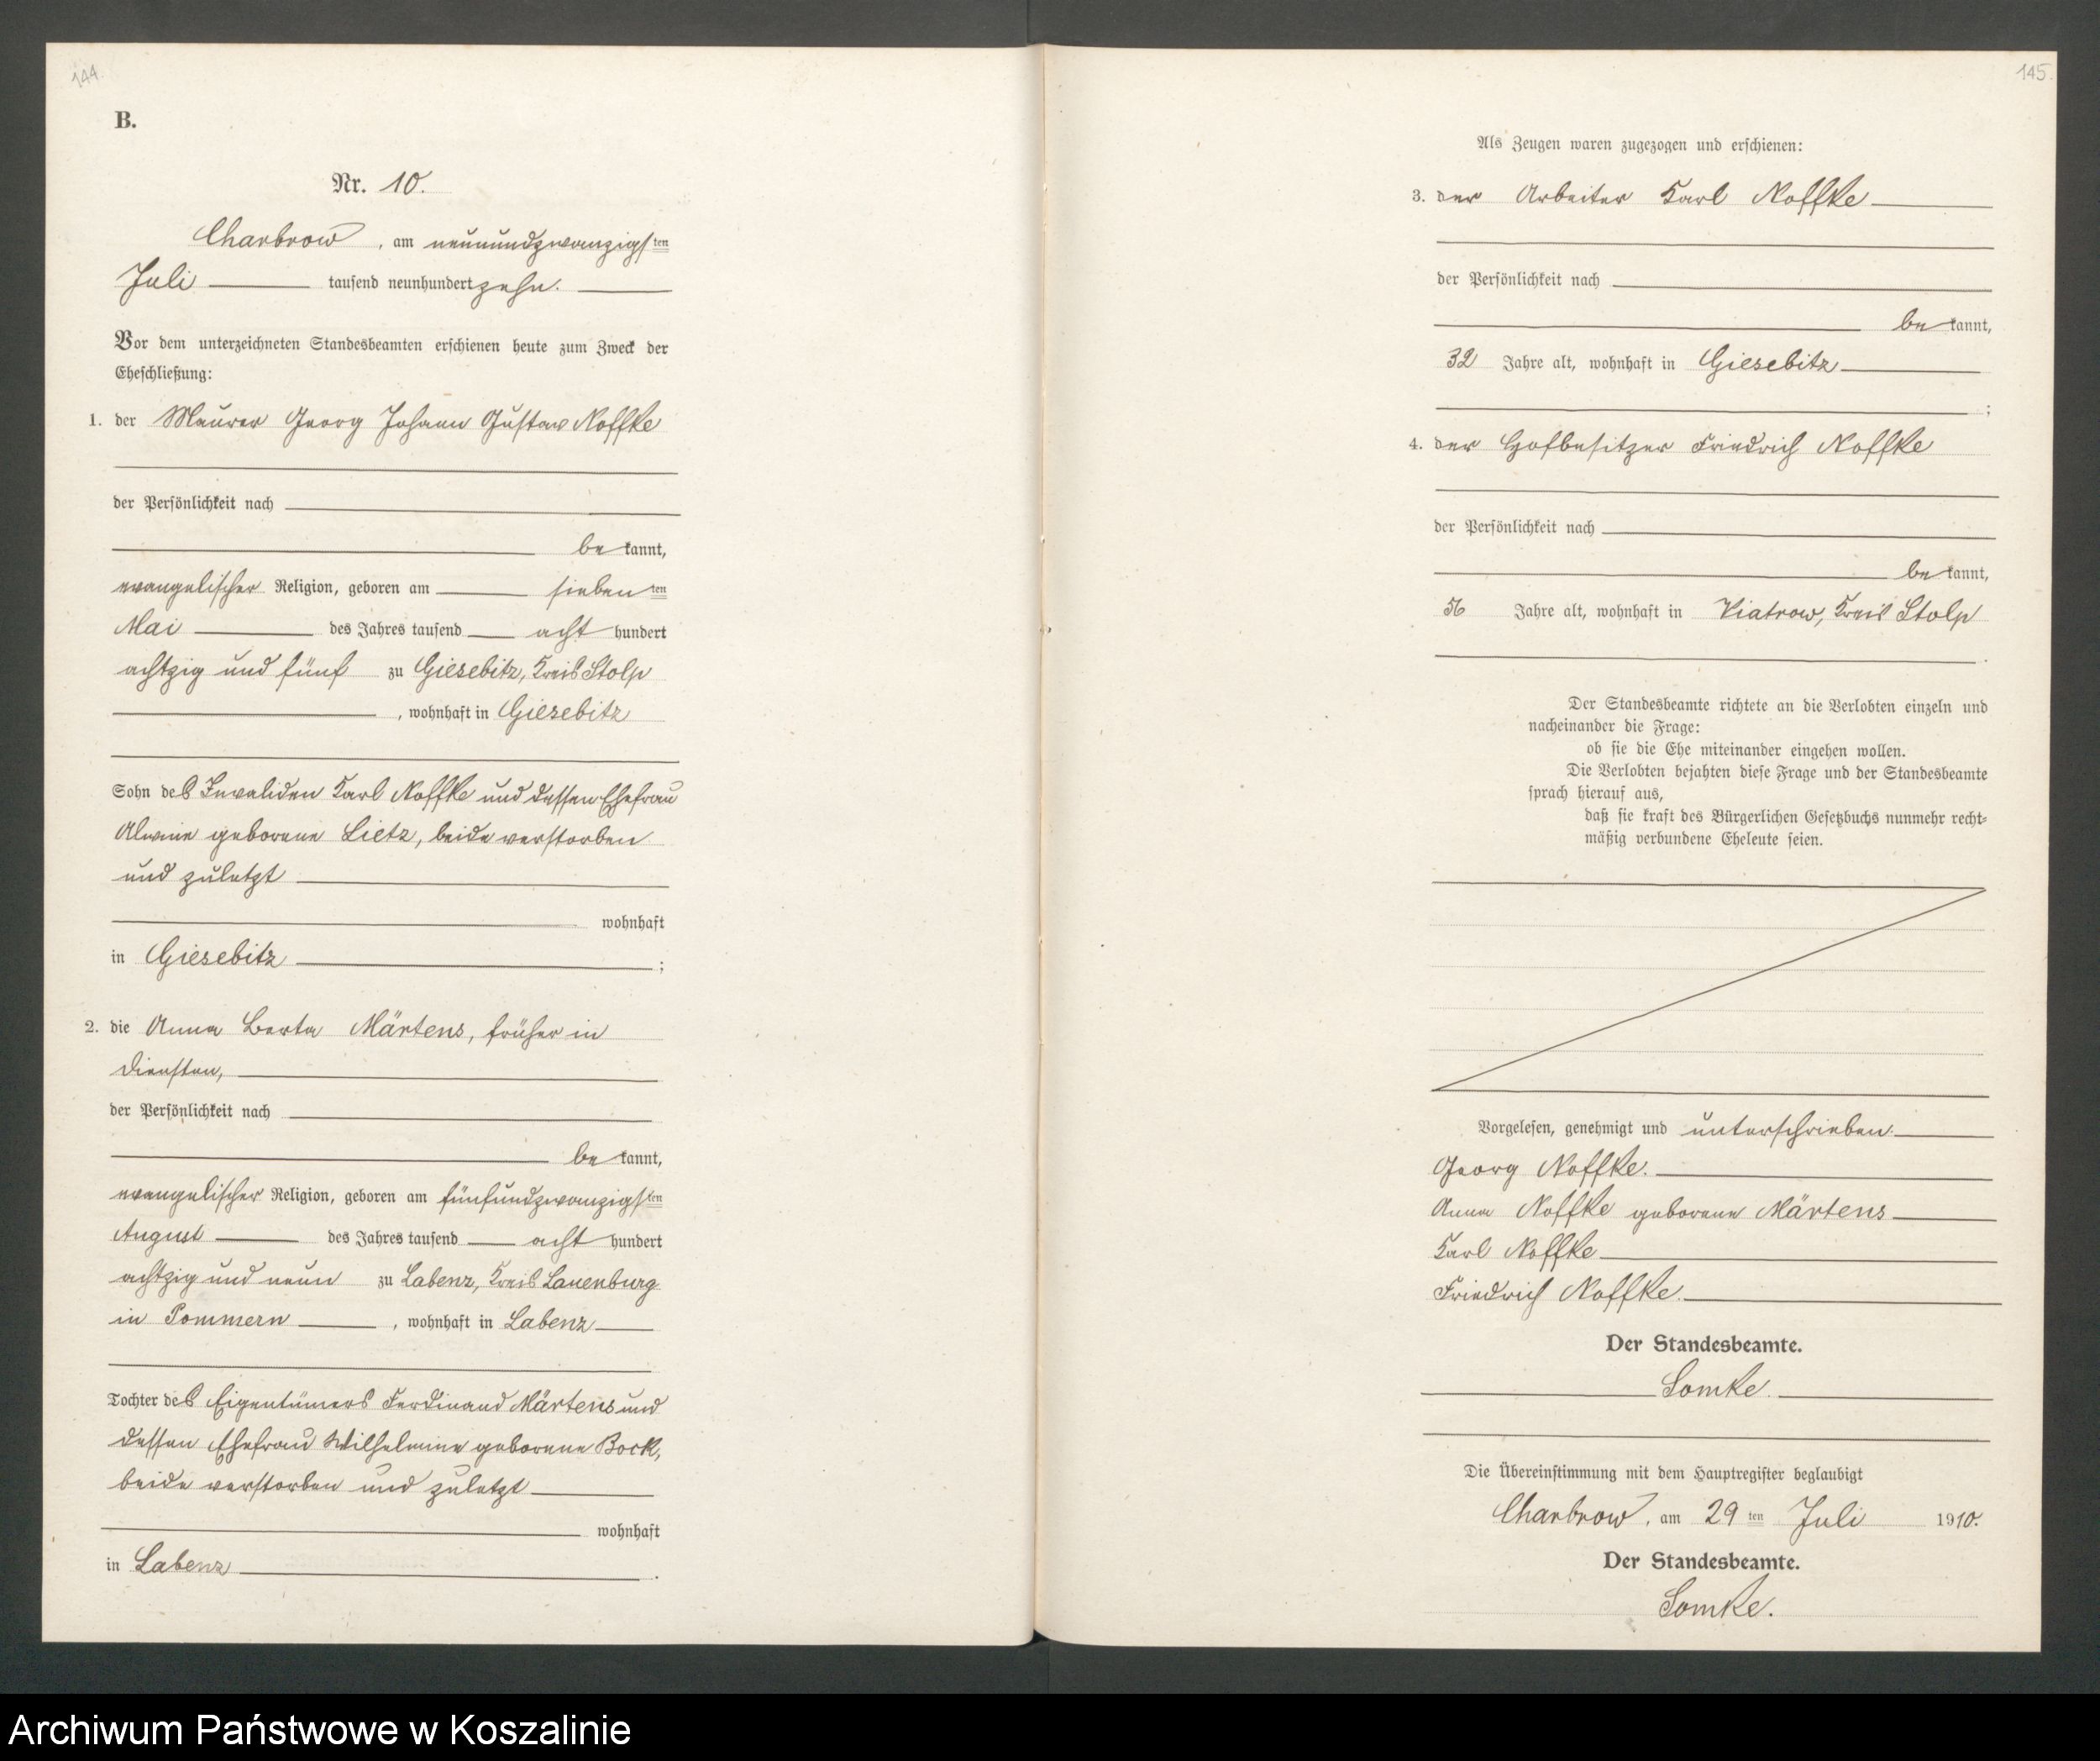 144.
B.
Nr. 10.
Charbrow, am neunundzwanzigsten
Juli tausend neunhundert zehn.
Vor dem unterzeichneten Standesbeamten erschienen heute zum Zweck der
Eheschließung:
1. der Maurer Georg Johann Gustav Noffke
der Persönlichkeit nach
bekannt,
evangelischer Religion, geboren am siebenten
Mai des Jahres tausend acht hundert
achtzig und fünf zu Giesebitz, Kreis Stolp
, wohnhaft in Giesebitz
Sohn des Invaliden Karl Noffke und dessen Ehefrau
Alwine geborene Lietz, beide verstorben
und zuletzt
wohnhaft
in Giesebitz ;
2. die Anna Berta Märtens, früher in
Diensten,
der Persönlichkeit nach
bekannt,
evangelischer Religion, geboren am fünfundzwanzigsten
August des Jahres tausend acht hundert
achtzig und neun zu Labenz, Kreis Lauenburg
in Pommern, wohnhaft in Labenz
Tochter des Eigentümers Ferdinand Märtens und
dessen Ehefrau Wilhelmine geborene Bock,
beide verstorben und zuletzt
wohnhaft
in Labenz .
145.
Als Zeugen waren zugezogen und erschienen:
3. der Arbeiter Karl Noffke
der Persönlichkeit nach
bekannt,
32 Jahre alt, wohnhaft in Giesebitz
;
4. der Hofbesitzer Friedrich Noffke
der Persönlichkeit nach
bekannt,
56 Jahre alt, wohnhaft in Viatrow, Kreis Stolp
.
Der Standesbeamte richtete an die Verlobten einzeln und
nacheinander die Frage:
ob sie die Ehe miteinander eingehen wollen.
Die Verlobten bejahten diese Frage und der Standesbeamte
sprach hierauf aus,
daß sie kraft des Bürgerlichen Gesetzbuchs nunmehr recht-
mäßig verbundene Eheleute seien.
Vorgelesen, genehmigt und unterschrieben.
Georg Noffke.
Anna Noffke geborene Märtens
Karl Noffke
Friedrich Noffke.
Der Standesbeamte.
Lomke.
Die Übereinstimmung mit dem Hauptregister beglaubigt
Charbrow, am 29ten Juli 1910.
Der Standesbeamte.
Lomke.
Archiwum Państwowe w Koszalinie